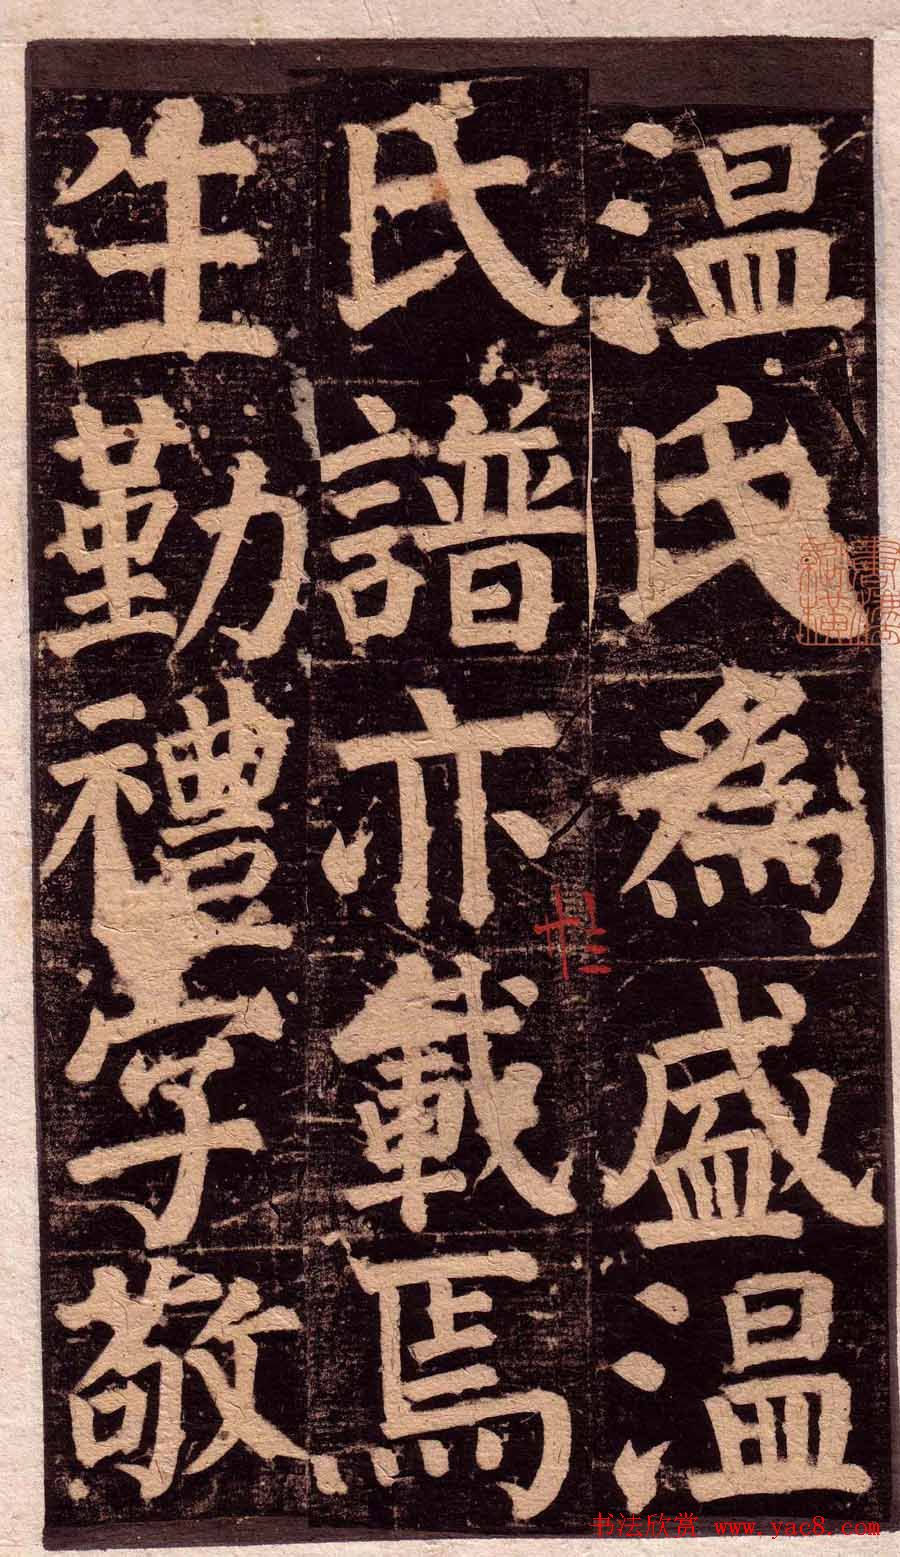 温氏為盛温
氏譜亦載焉
生勤禮字敬
书法欣赏 www.yac8.com